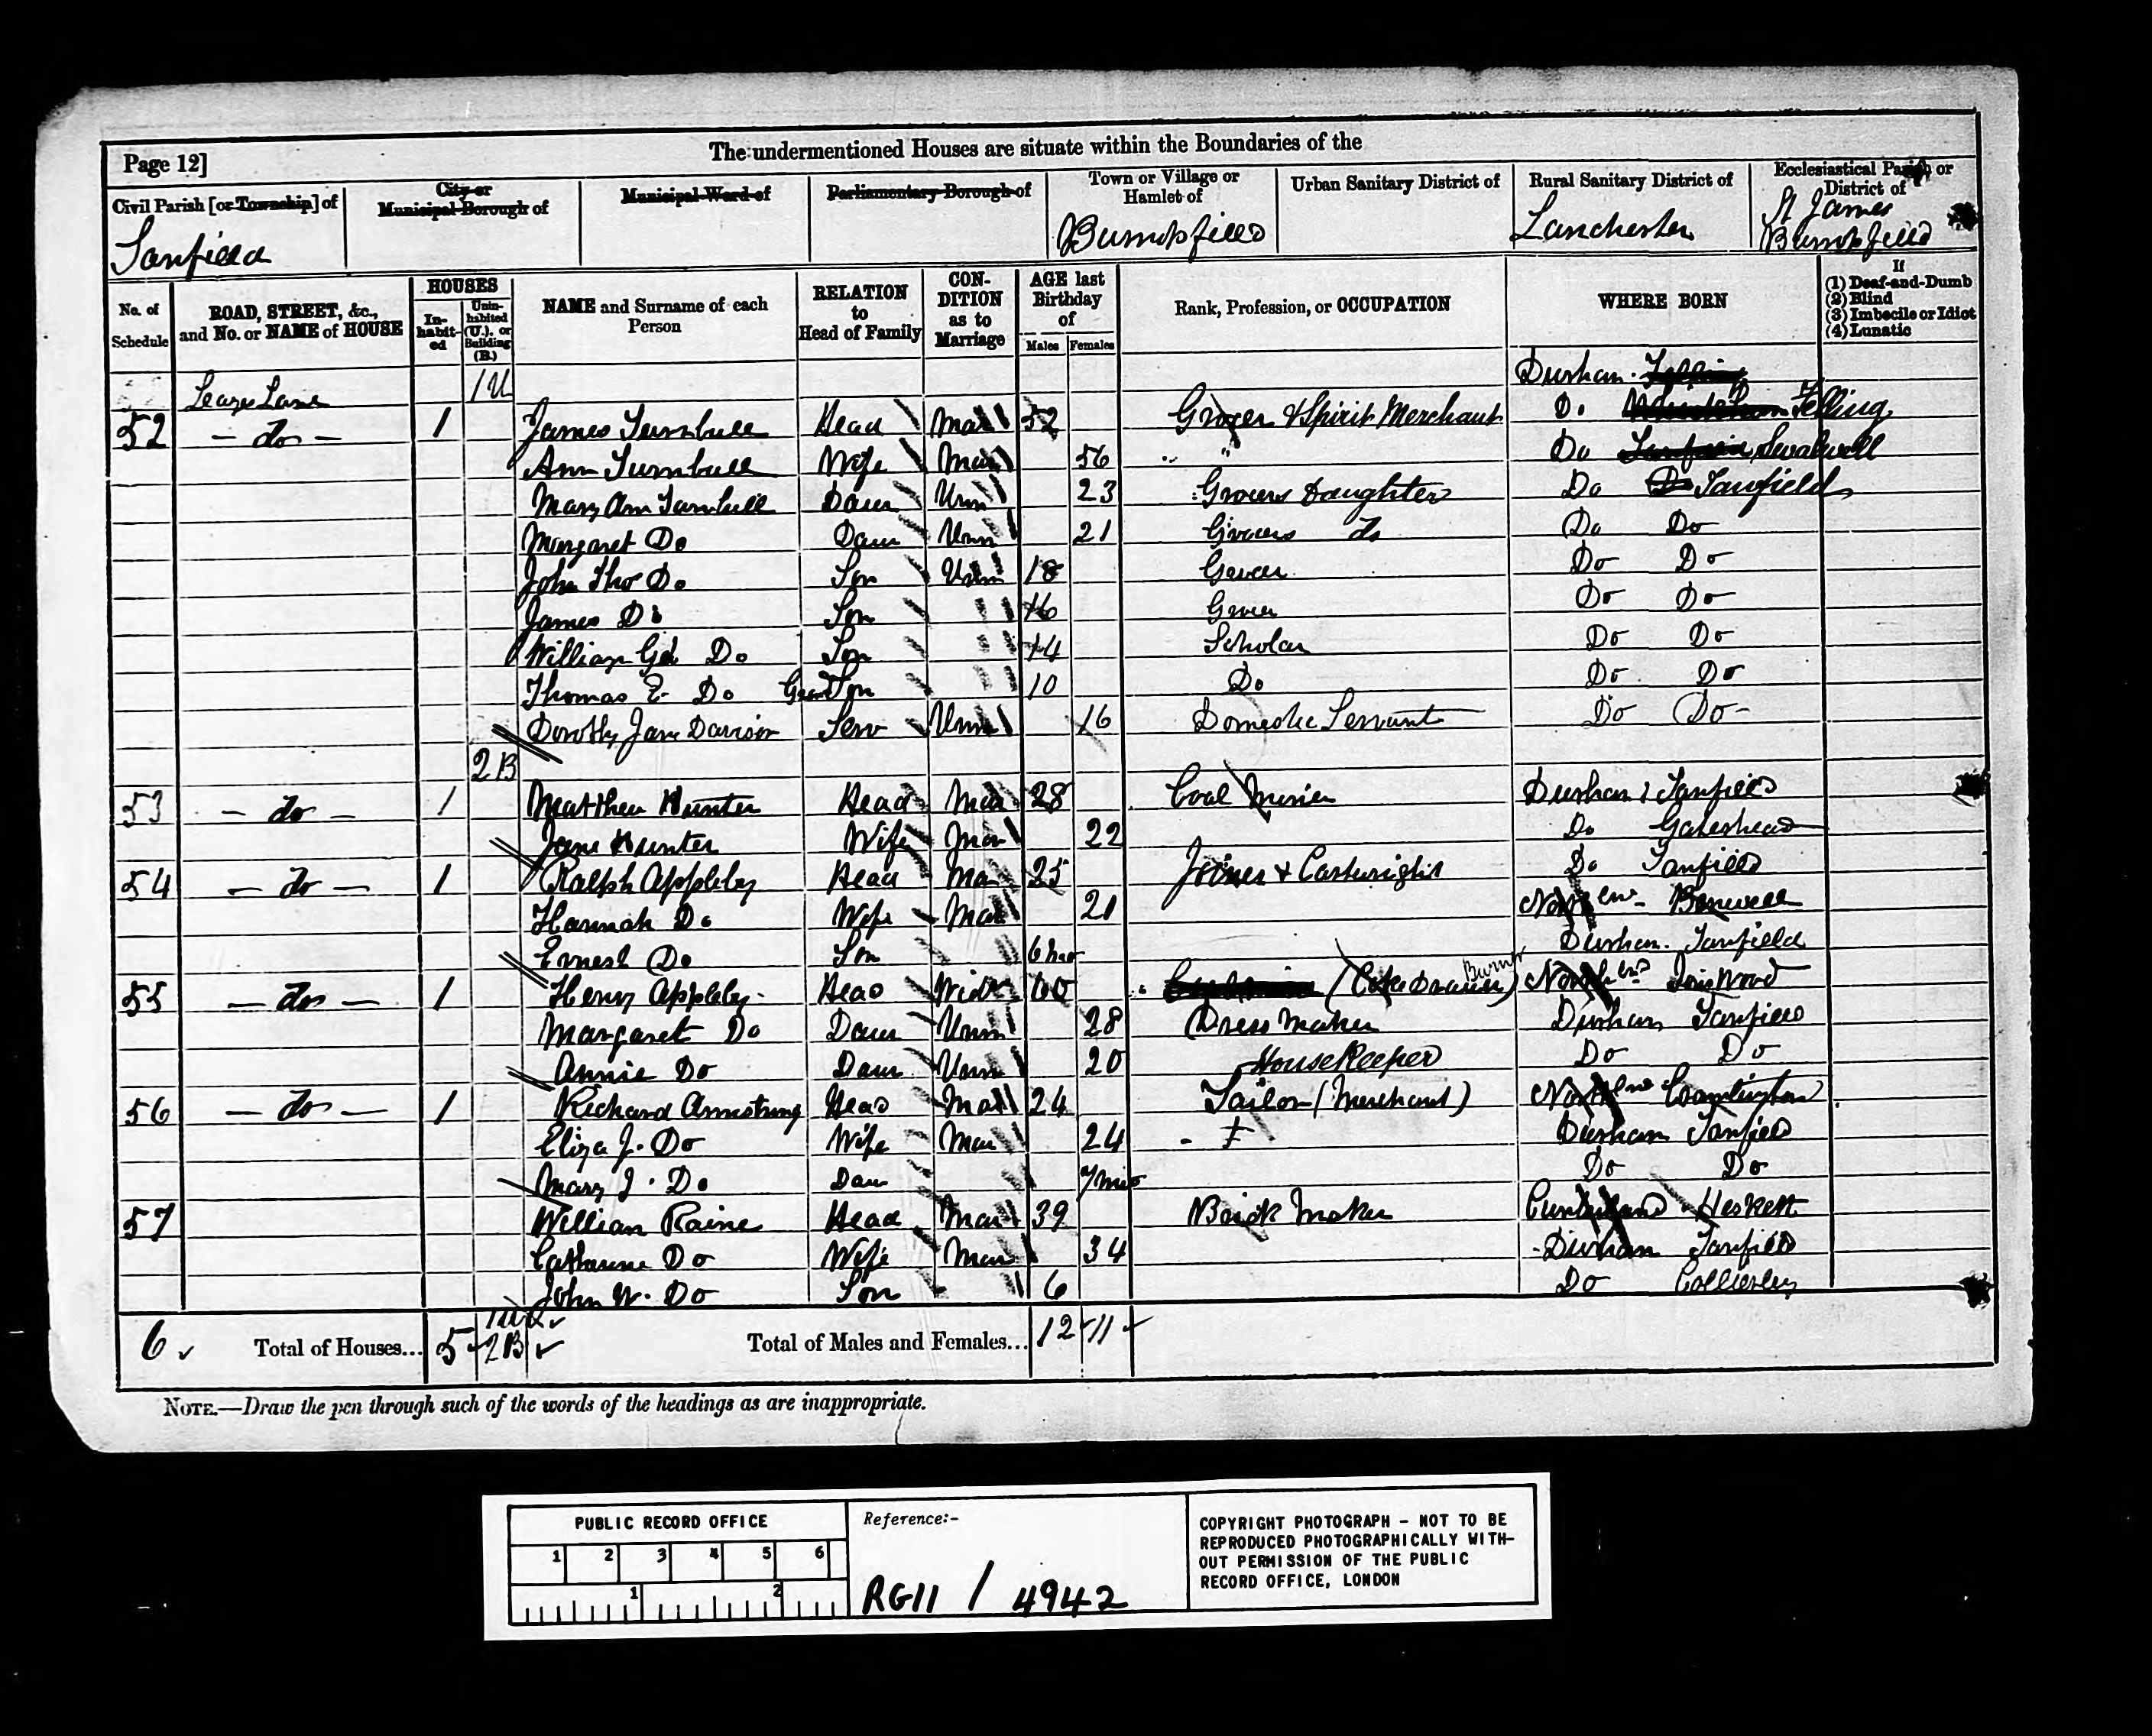 Page 12]
The undermentioned Houses are situate within the Boundaries of the
Civil Parish [or Township] of
City or Municipal Borough of
Municipal Ward of
Parliamentary Borough of
Town or Village or Hamlet of
Urban Sanitary District of
Rural Sanitary District of
Ecclesiastical Parish or District of
Tanfield
Burnopfield
Lanchester
St James Burnopfield
No. of Schedule
ROAD, STREET, &c., and No. or NAME of HOUSE
HOUSES
In-habit-ed
Unin-habited (U.), or Building (B.)
NAME and Surname of each Person
RELATION to Head of Family
CON-DITION as to Marriage
AGE last Birthday of
Males
Females
Rank, Profession, or OCCUPATION
WHERE BORN
If
(1) Deaf-and-Dumb
(2) Blind
(3) Imbecile or Idiot
(4) Lunatic
Leazes Lane 1 U Durham. Felling
52 - do - 1 James Turnbull Head Mar 52 Grocer & Spirit Merchant Do Felling
Ann Turnbull Wife Mar 56 " " Do Tanfield Swalwell
Mary Ann Turnbull Daur Unm 23 Grocers Daughter Do Do Tanfield
Margaret Do Daur Unm 21 Grocers do Do Do
John Tho Do Son Unm 18 Grocer Do Do
James Do Son 16 Grocer Do Do
William Gd Do Son 14 Scholar Do Do
Thomas E. Do Grand Son 10 Do Do Do
Dorothy Jane Davison Serv Unm 16 Domestic Servant Do Do
2 B
53 - do - 1 Matthew Hunter Head Mar 28 Coal Miner Durham Tanfield
Jane Hunter Wife Mar 22 Do Gateshead
54 - do - 1 Ralph Appleby Head Mar 25 Joiner & Cartwright Do Tanfield
Hannah Do Wife Mar 21 Benwell
Ernest Do Son 6 mo Durham. Tanfield
55 - do - 1 Henry Appleby Head Widr 60 (Coke Drawer) Burner
Margaret Do Daur Unm 28 Dress Maker Durham Tanfield
Annie Do Daur Unm 20 HouseKeeper Do Do
56 - do - 1 Richard Armstrong Head Mar 24 Tailor (Merchant) Cramlington
Eliza J. Do Wife Mar 24 Durham Tanfield
Mary J. Do Dau 7 mo Do Do
57 William Raine Head Mar 39 Brick Maker Cumberland Heskett
Catharine Do Wife Mar 34 Durham Tanfield
John W. Do Son 6 Do Collierley
6 Total of Houses... 5 1 U 2 B Total of Males and Females... 12 11
NOTE.—Draw the pen through such of the words of the headings as are inappropriate.
PUBLIC RECORD OFFICE
1 2 3 4 5 6
1 2
Reference:-
RG11 / 4942
COPYRIGHT PHOTOGRAPH - NOT TO BE
REPRODUCED PHOTOGRAPHICALLY WITH-
OUT PERMISSION OF THE PUBLIC
RECORD OFFICE, LONDON